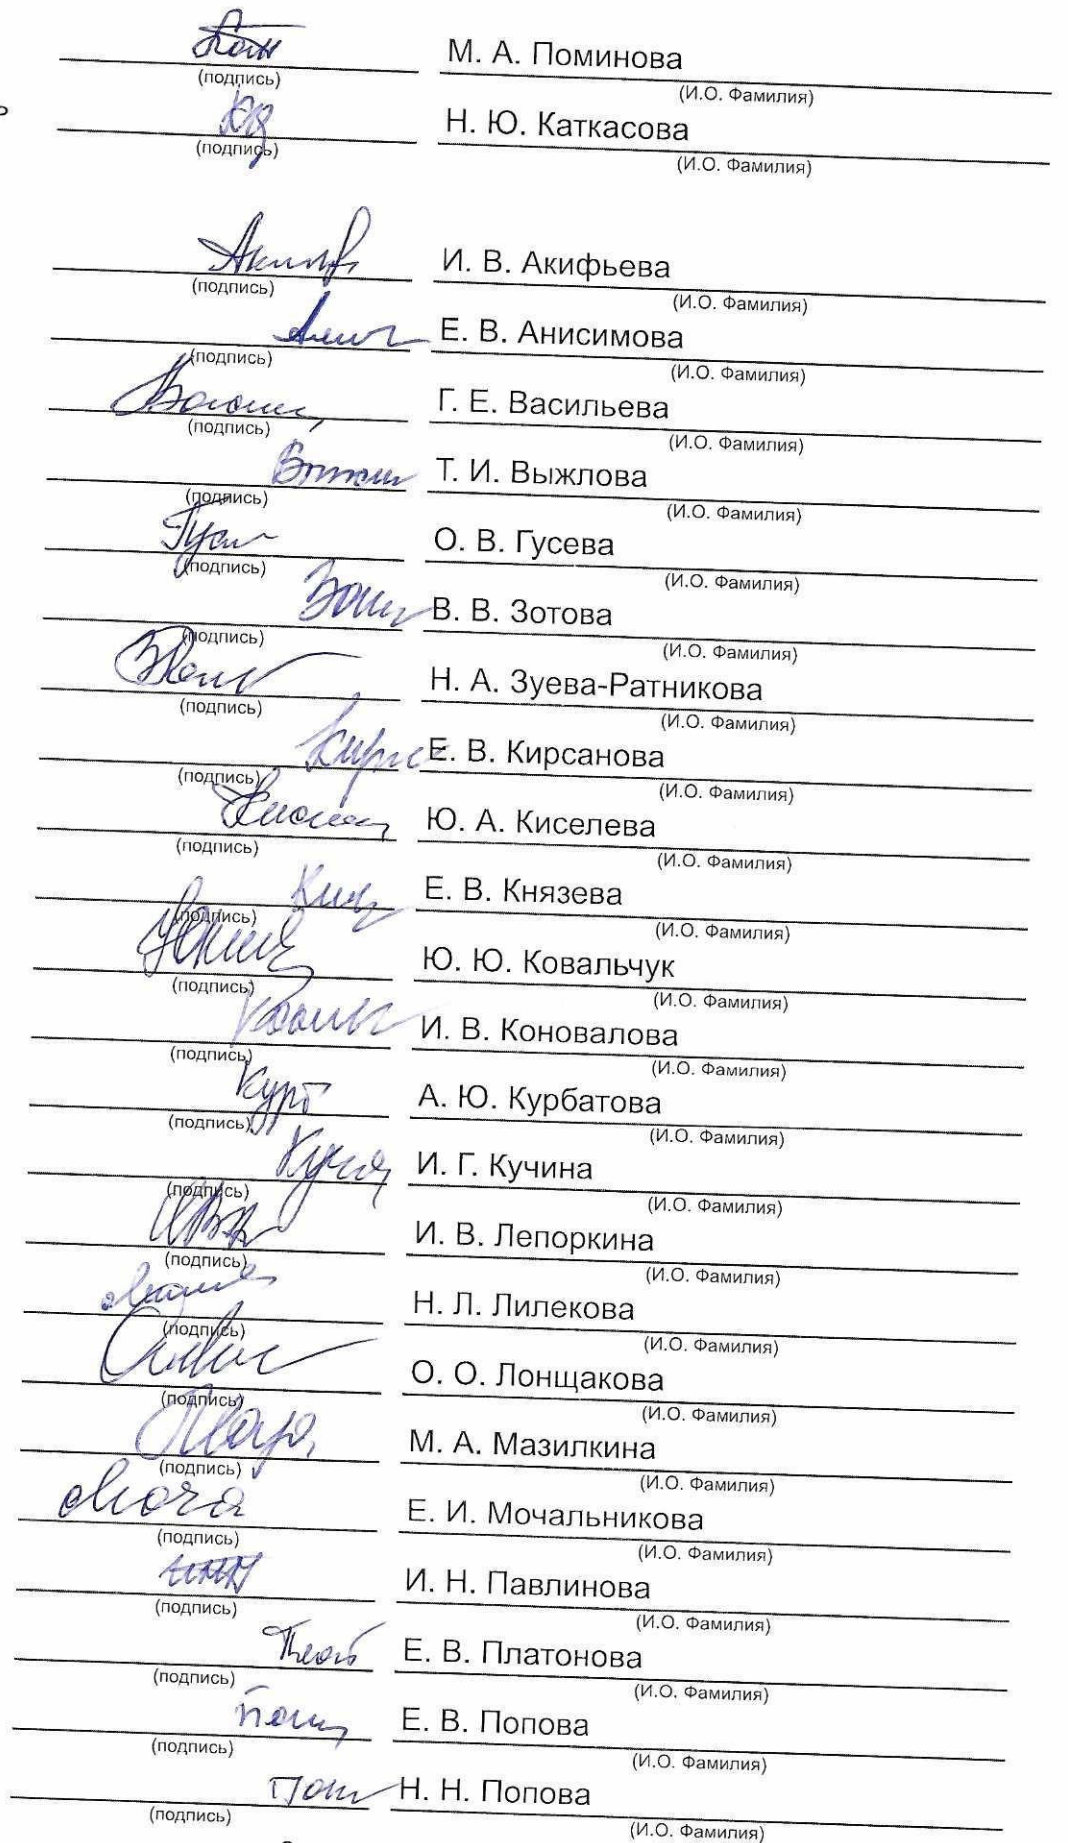 М. А. Поминова
(подпись) (И.О. Фамилия)
Н. Ю. Каткасова
(подпись) (И.О. Фамилия)
И. В. Акифьева
(подпись) (И.О. Фамилия)
Е. В. Анисимова
(подпись) (И.О. Фамилия)
Г. Е. Васильева
(подпись) (И.О. Фамилия)
Т. И. Выжлова
(подпись) (И.О. Фамилия)
О. В. Гусева
(подпись) (И.О. Фамилия)
В. В. Зотова
(подпись) (И.О. Фамилия)
Н. А. Зуева-Ратникова
(подпись) (И.О. Фамилия)
Е. В. Кирсанова
(подпись) (И.О. Фамилия)
Ю. А. Киселева
(подпись) (И.О. Фамилия)
Е. В. Князева
(подпись) (И.О. Фамилия)
Ю. Ю. Ковальчук
(подпись) (И.О. Фамилия)
И. В. Коновалова
(подпись) (И.О. Фамилия)
А. Ю. Курбатова
(подпись) (И.О. Фамилия)
И. Г. Кучина
(подпись) (И.О. Фамилия)
И. В. Лепоркина
(подпись) (И.О. Фамилия)
Н. Л. Лилекова
(подпись) (И.О. Фамилия)
О. О. Лонщакова
(подпись) (И.О. Фамилия)
М. А. Мазилкина
(подпись) (И.О. Фамилия)
Е. И. Мочальникова
(подпись) (И.О. Фамилия)
И. Н. Павлинова
(подпись) (И.О. Фамилия)
Е. В. Платонова
(подпись) (И.О. Фамилия)
Е. В. Попова
(подпись) (И.О. Фамилия)
Н. Н. Попова
(подпись) (И.О. Фамилия)